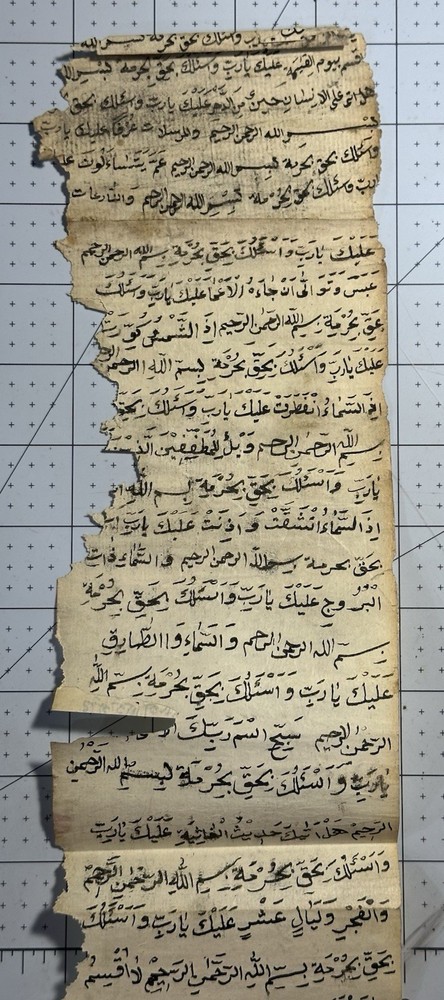 يارب وسئلك بحق بحرمة بسم الله
اقسم بيوم القيمة عليك يارب وسئلك بحق بحرمة بسم الله
هل اتى على الانسان حين من الدهر عليك يارب وسئلك بحق
بسم الله الرحمن الرحيم والمرسلات عرفا عليك يارب
وسئلك بحق بحرمة بسم الله الرحمن الرحيم عم يتساءلون
يارب وسئلك بحق بحرمة بسم الله الرحمن الرحيم والنازعات
عَلَيْكَ يَارَبِّ وَاَسْئَلُكَ بِحَقِّ بِحُرْمَةِ بِسْمِ الله الرحمن الرحيم
عَبَسَ وَتَوَالّٰى اَنْ جَاءَهُ الْاَعْمٰا عَلَيْكَ يَارَبِّ وَسْئَلُكَ
بحق بحرمة بسم الله الرحمن الرحيم اِذَ الشَّمْسُ كورت
عليك يارب واسئلك بِحَقِّ بحُرْمَةِ بسم الله الرحمن
اِذَ السَّمَاءُ انْفَطَرَتْ عَلَيْكَ يارب وسئلك بحق
بسم الله الرحمن الرحيم وَيْلٌ لِلْمُطَفِّفِينَ الَّذِينَ
يَارَبِّ وَاَسْئَلُكَ بِحَقِّ بِحُرْمَةِ بسم الله
اِذَ السَّمَاءُ انْشَقَّتْ وَاَذِنَتْ عَلَيْكَ يَارب
بحق بحرمة بسم الله الرحمن الرحيم والسَّمَاءِ ذات
الْبُرُوجِ عَلَيْكَ يَارَبِّ وَاَسْئَلُكَ بِحَقِّ بِحُرْمَةِ
بسم الله الرحمن الرحيم وَالسَّمَاءِ وَاالطَّارِقِ
عَلَيْكَ يَارَبِّ وَاَسْئَلُكَ بِحَقِّ بِحُرْمَةِ بِسْمِ اللهِ
الرحمن الرحيم سَبِّحِ اسْمَ رَبِّكَ
يَارَبِّ وَاَسْئَلُكَ بِحَقِّ بِحُرْمَةِ بسم الله الرحمن
الرحيم هَلْ اَتٰيكَ حَدِيثُ الْغَاشِيَةِ عَلَيْكَ يَارَبِّ
وَاَسْئَلُكَ بِحَقِّ بِحُرْمَةِ بِسْمِ اللهِ الرَّحْمٰنِ الرَّحِيمِ
وَالْفَجْرِ وَلَيَالٍ عَشْرٍ عَلَيْكَ يَارَبِّ وَاَسْئَلُكَ
بِحَقِّ بِحُرْمَةِ بِسْمِ اللهِ الرَّحْمٰنِ الرَّحِيمِ لَا اُقْسِمُ